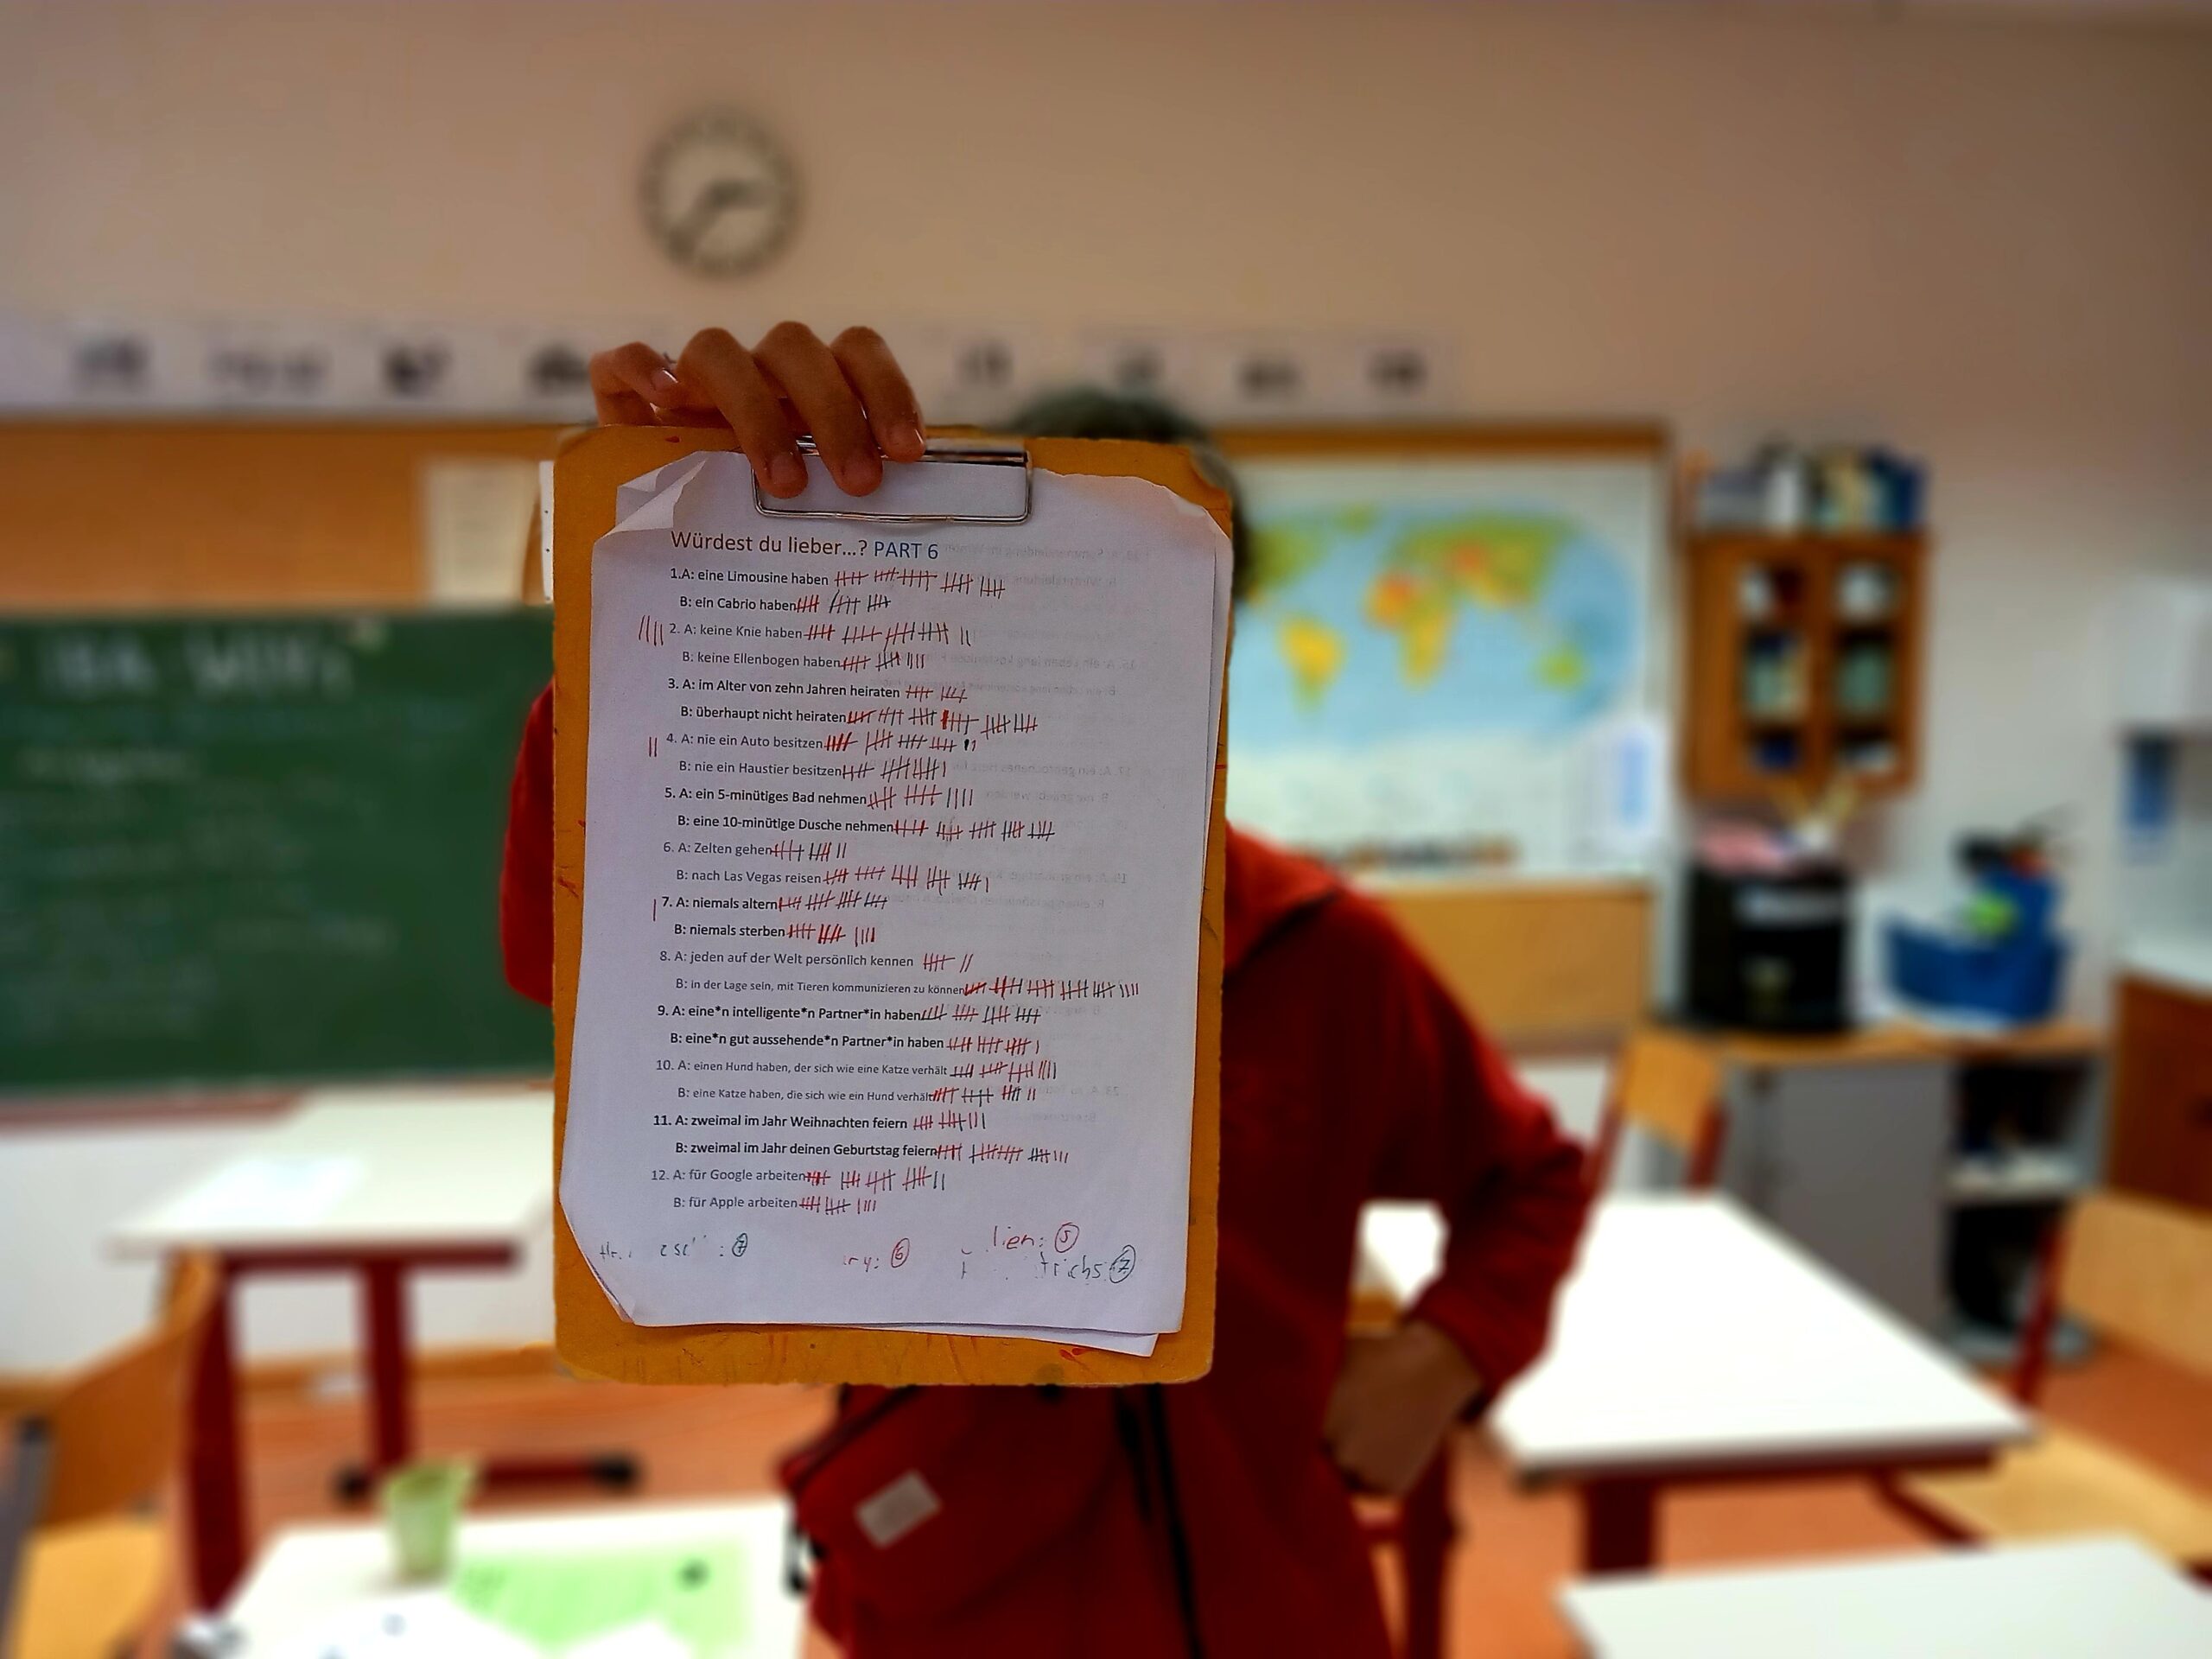 Würdest du lieber...? PART 6
1.A: eine Limousine haben
B: ein Cabrio haben
2. A: keine Knie haben
B: keine Ellenbogen haben
3. A: im Alter von zehn Jahren heiraten
B: überhaupt nicht heiraten
4. A: nie ein Auto besitzen
B: nie ein Haustier besitzen
5. A: ein 5-minütiges Bad nehmen
B: eine 10-minütige Dusche nehmen
6. A: Zelten gehen
B: nach Las Vegas reisen
7. A: niemals altern
B: niemals sterben
8. A: jeden auf der Welt persönlich kennen
B: in der Lage sein, mit Tieren kommunizieren zu können
9. A: eine*n intelligente*n Partner*in haben
B: eine*n gut aussehende*n Partner*in haben
10. A: einen Hund haben, der sich wie eine Katze verhält
B: eine Katze haben, die sich wie ein Hund verhält
11. A: zweimal im Jahr Weihnachten feiern
B: zweimal im Jahr deinen Geburtstag feiern
12. A: für Google arbeiten
B: für Apple arbeiten